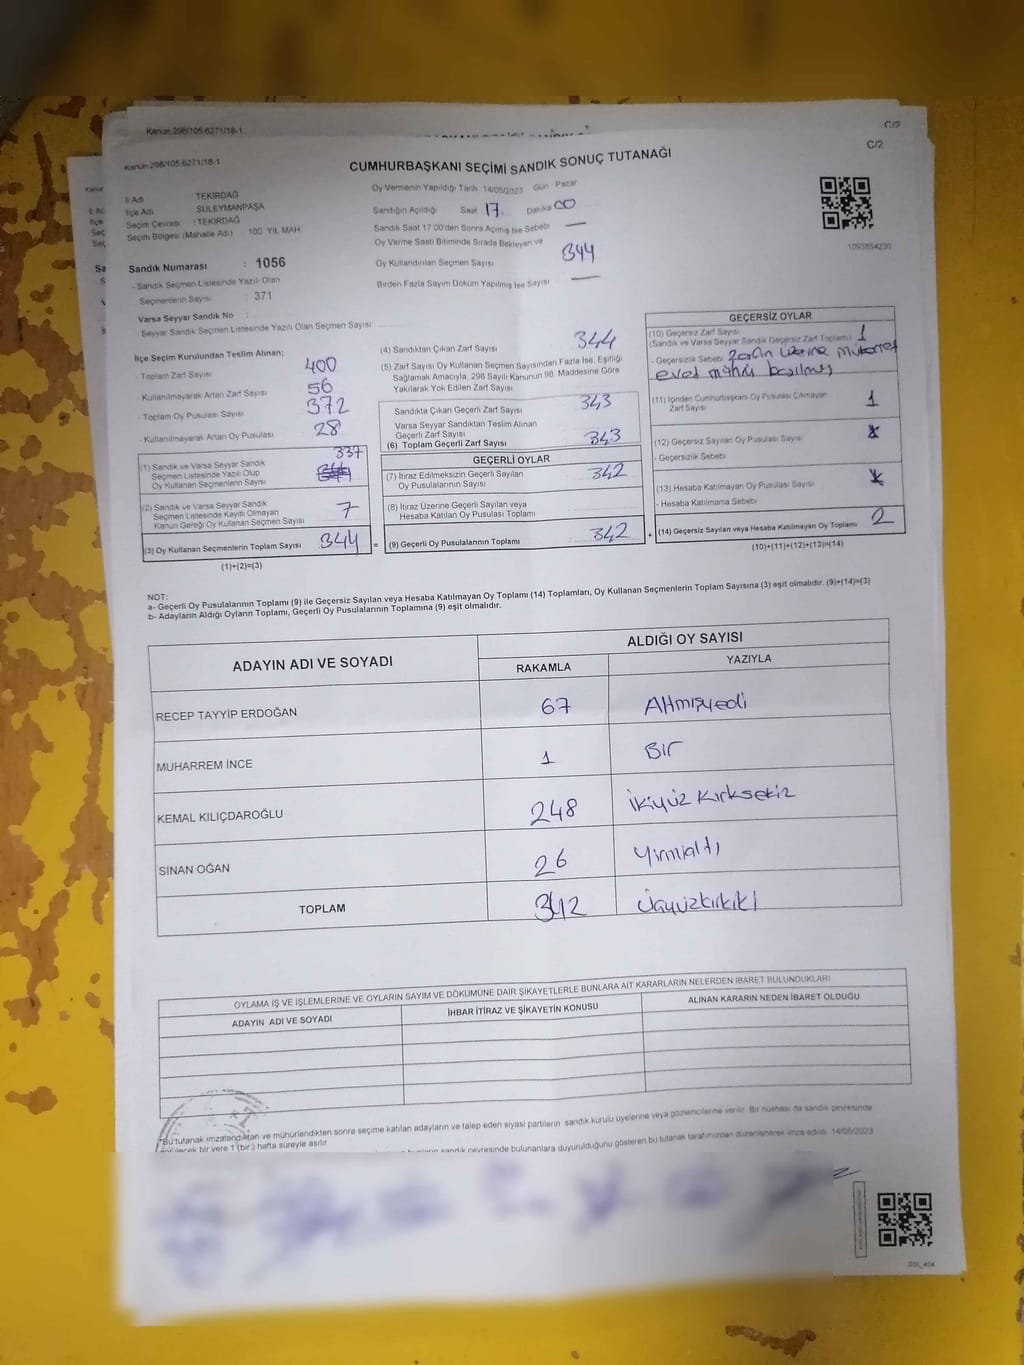 Kanun.298/105:6271/18-1
C/2
Kanun.298/105:6271/18-1
C/2
CUMHURBAŞKANI SEÇİMİ SANDIK SONUÇ TUTANAĞI
İl Adı TEKİRDAĞ
İlçe Adı SÜLEYMANPAŞA
Seçim Çevresi : TEKİRDAĞ
Seçim Bölgesi (Mahalle Adı) 100. YIL MAH
Oy Vermenin Yapıldığı Tarih 14/05/2023 Gün Pazar
Sandığın Açıldığı Saat 17. Dakika 00
Sandık Saat 17.00'den Sonra Açılmış İse Sebebi —
Oy Verme Saati Bitiminde Sırada Bekleyen ve
Oy Kullandırılan Seçmen Sayısı 344
Birden Fazla Sayım Döküm Yapılmış İse Sayısı —
1093854230
Sandık Numarası : 1056
- Sandık Seçmen Listesinde Yazılı Olan
Seçmenlerin Sayısı : 371
Varsa Seyyar Sandık No :
- Seyyar Sandık Seçmen Listesinde Yazılı Olan Seçmen Sayısı:
İlçe Seçim Kurulundan Teslim Alınan;
- Toplam Zarf Sayısı 400
- Kullanılmayarak Artan Zarf Sayısı 56
- Toplam Oy Pusulası Sayısı 372
- Kullanılmayarak Artan Oy Pusulası 28
(1) Sandık ve Varsa Seyyar Sandık
Seçmen Listesinde Yazılı Olup
Oy Kullanan Seçmenlerin Sayısı 337
(2) Sandık ve Varsa Seyyar Sandık
Seçmen Listesinde Kayıtlı Olmayan
Kanun Gereği Oy Kullanan Seçmen Sayısı 7
(3) Oy Kullanan Seçmenlerin Toplam Sayısı 344 =
(1)+(2)=(3)
(4) Sandıktan Çıkan Zarf Sayısı 344
(5) Zarf Sayısı Oy Kullanan Seçmen Sayısından Fazla İse, Eşitliği
Sağlamak Amacıyla, 298 Sayılı Kanunun 98. Maddesine Göre
Yakılarak Yok Edilen Zarf Sayısı
Sandıkta Çıkan Geçerli Zarf Sayısı 343
Varsa Seyyar Sandıktan Teslim Alınan
Geçerli Zarf Sayısı
(6) Toplam Geçerli Zarf Sayısı 343
GEÇERLİ OYLAR
(7) İtiraz Edilmeksizin Geçerli Sayılan
Oy Pusulalarının Sayısı 342
(8) İtiraz Üzerine Geçerli Sayılan veya
Hesaba Katılan Oy Pusulası Toplamı
(9) Geçerli Oy Pusulalarının Toplamı 342 +
GEÇERSİZ OYLAR
(10) Geçersiz Zarf Sayısı
(Sandık ve Varsa Seyyar Sandık Geçersiz Zarf Toplamı) 1
- Geçersizlik Sebebi Zarfın üzerine mükerrer
evet mührü basılmış
(11) İçinden Cumhurbaşkanı Oy Pusulası Çıkmayan
Zarf Sayısı 1
(12) Geçersiz Sayılan Oy Pusulası Sayısı
- Geçersizlik Sebebi
(13) Hesaba Katılmayan Oy Pusulası Sayısı
- Hesaba Katılmama Sebebi
(14) Geçersiz Sayılan veya Hesaba Katılmayan Oy Toplamı 2
(10)+(11)+(12)+(13)=(14)
NOT:
a- Geçerli Oy Pusulalarının Toplamı (9) ile Geçersiz Sayılan veya Hesaba Katılmayan Oy Toplamı (14) Toplamları, Oy Kullanan Seçmenlerin Toplam Sayısına (3) eşit olmalıdır. (9)+(14)=(3)
b- Adayların Aldığı Oyların Toplamı, Geçerli Oy Pusulalarının Toplamına (9) eşit olmalıdır.
ADAYIN ADI VE SOYADI
ALDIĞI OY SAYISI
RAKAMLA YAZIYLA
RECEP TAYYİP ERDOĞAN 67 Altmışyedi
MUHARREM İNCE 1 Bir
KEMAL KILIÇDAROĞLU 248 İkiyüz Kırksekiz
SİNAN OĞAN 26 Yirmialtı
TOPLAM 342 Üçyüzkırkiki
OYLAMA İŞ VE İŞLEMLERİNE VE OYLARIN SAYIM VE DÖKÜMÜNE DAİR ŞİKAYETLERLE BUNLARA AİT KARARLARIN NELERDEN İBARET BULUNDUKLARI
ADAYIN ADI VE SOYADI
İHBAR İTİRAZ VE ŞİKAYETİN KONUSU
ALINAN KARARIN NEDEN İBARET OLDUĞU
*Bu tutanak imzalandıktan ve mühürlendikten sonra seçime katılan adayların ve talep eden siyasi partilerin sandık kurulu üyelerine veya gözlemcilerine verilir. Bir nüshası da sandık çevresinde
bir yere 1 (bir) hafta süreyle asılır.
sandık çevresinde bulunanlara duyurulduğunu gösteren bu tutanak tarafımızdan düzenlenerek imza edildi. 14/05/2023